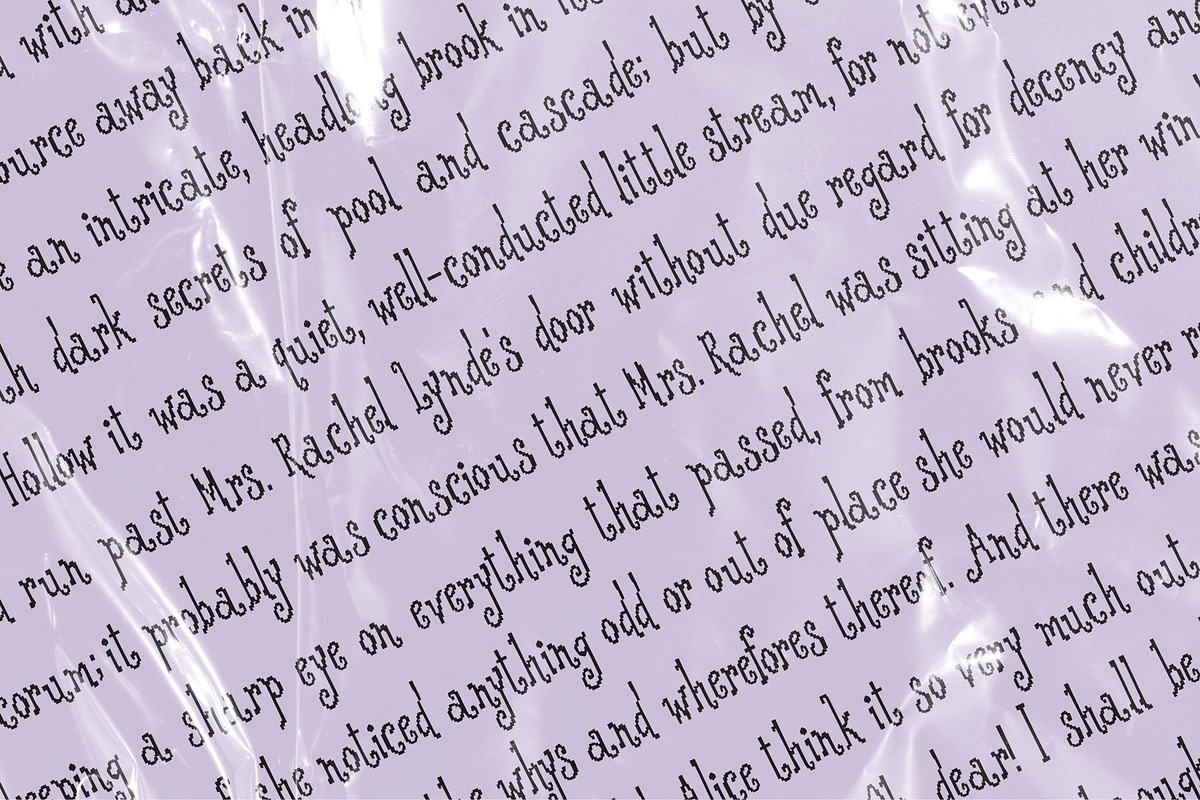 with
ource away back in
an intricate, headlong brook in
dark secrets of pool and cascade; but by
Hollow it was a quiet, well-conducted little stream, for not even
run past Mrs. Rachel Lynde's door without due regard for decency and
corum; it probably was conscious that Mrs. Rachel was sitting at her win
eeping a sharp eye on everything that passed, from brooks and childr
she noticed anything odd or out of place she would never r
whys and wherefores thereof. And there was
Alice think it so very much out
dear! I shall be